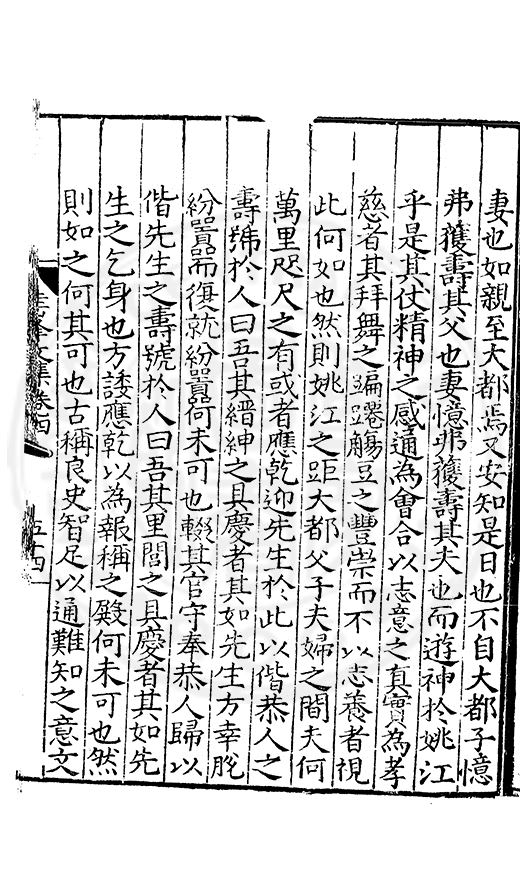 妻也如親至大都焉又安知是日也不自大都子憶
弗獲壽其父也妻憶弗獲壽其夫也而遊神於姚江
乎是其仗精神之感通為會合以志意之真實為孝
慈者其拜舞之蹁躚觴豆之豐崇而不以志養者視
此何如也然則姚江之距大都父子夫婦之間夫何
萬里咫尺之有或者應乾迎先生於此以偕恭人之
壽號於人曰吾其縉紳之具慶者其如先生方幸脫
紛囂而復就紛囂何未可也輟其官守奉恭人歸以
偕先生之壽號於人曰吾其里閭之具慶者其如先
生之乞身也方諉應乾以為報稱之殿何未可也然
則如之何其可也古稱良史智足以通難知之意文
文集卷四
五十四